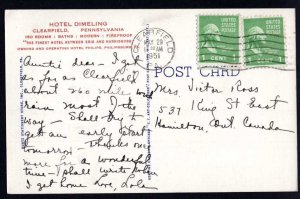 HOTEL DIMELING
CLEARFIELD, PENNSYLVANIA
150 ROOMS - BATHS - MODERN - FIREPROOF
"THE FINEST HOTEL BETWEEN ERIE AND HARRISBURG"
OWNING AND OPERATING HOTEL PHILIPS, PHILIPSBURG
Auntie dear - I got
as far as Clearfield
about 260 miles and
rain most of the
way - Shall try to
get an early start
tomorrow - Thanks once
more for a wonderful
time - shall write when
I get home Love, Lola
CLEARFIELD
29
AM
1951
UNITED STATES
POSTAGE
1 CENT
UNITED STATES
POSTAGE
POST CARD
Mrs. Victor Ross
537 King St East
Hamilton, Ont. Canada